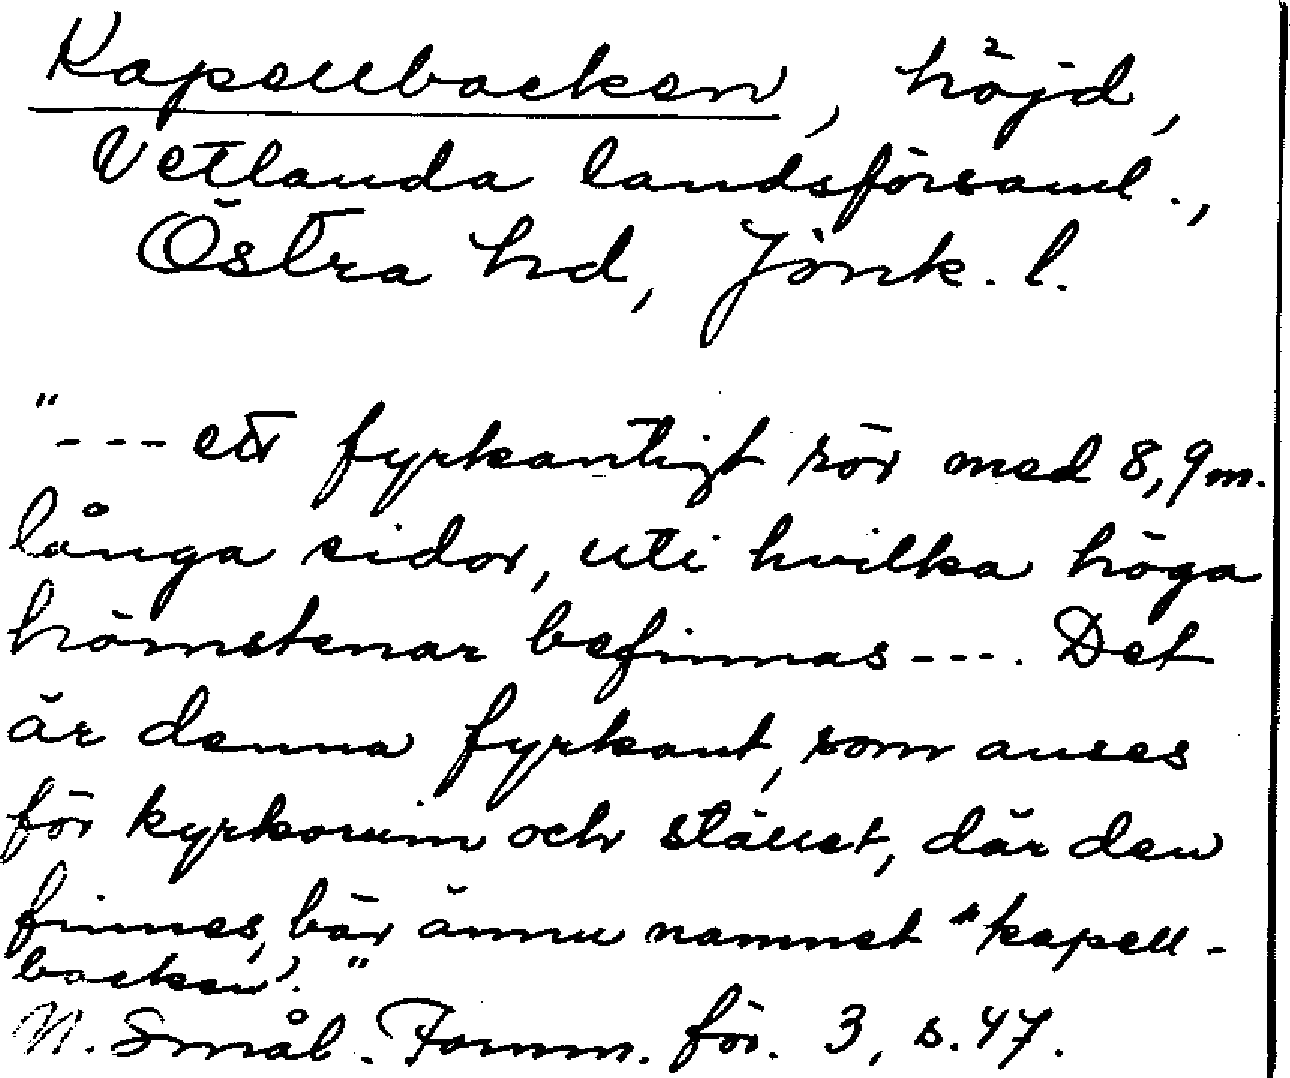 Kapellbacken, höjd,
Vetlanda landsförsaml.,
Östra hd, Jönk. l.
"--- ett fyrkantigt rör med 8,9 m.
långa sidor, uti hvilka höga
hörnstenar befinnas ---. Det
är denna fyrkant, som anses
för kyrkorum och stället, där den
finnes, bär ännu namnet "kapell-
backen'."
N. Smål. Fornm. för. 3, s. 47.